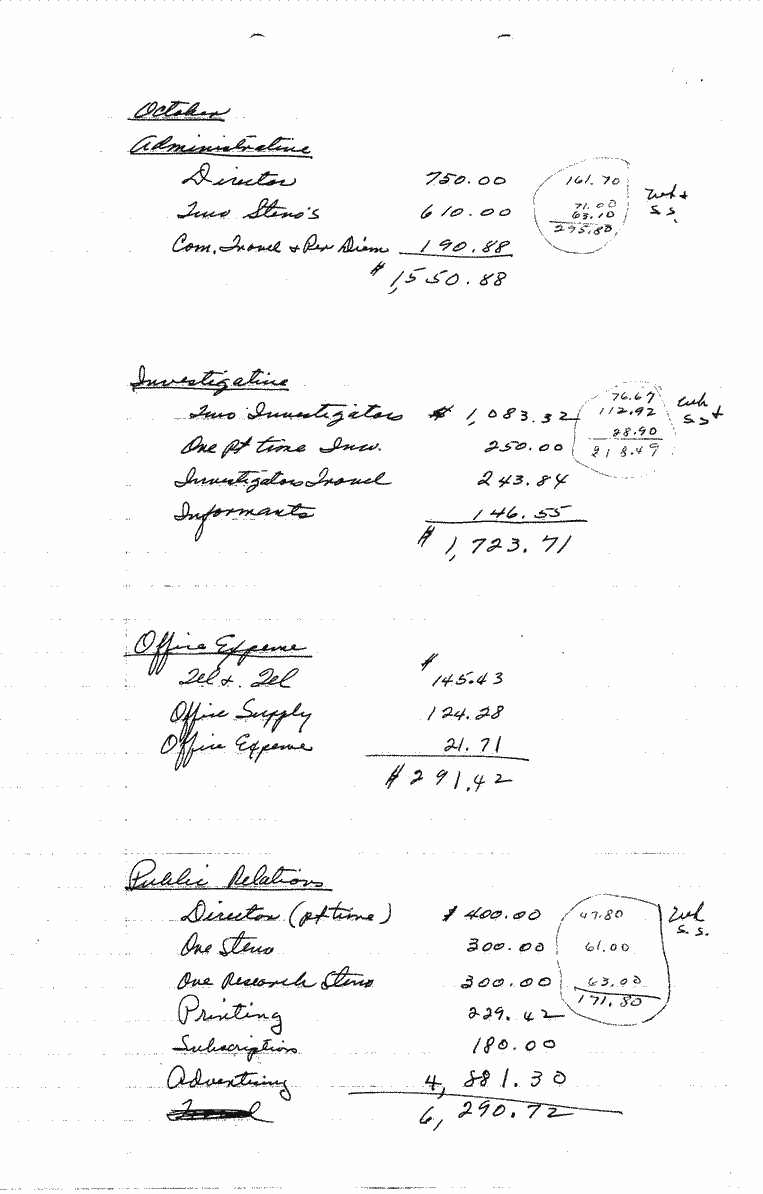 October
Administrative
Director 750.00 161.70 Wh +
Two Steno's 610.00 71.00 S.S.
63.10
Com. Travel + Per Diem 190.88 295.80
$ 1,550.88
Investigative
76.67 Wh
Two Investigators $ 1,083.32 112.92 SS +
28.90
One pt time Inv. 250.00 218.49
Investigators Travel 243.84
Informants 146.55
$ 1,723.71
Office Expense
$
Tel + Tel 145.43
Office Supply 124.28
Office Expense 21.71
$ 291.42
Public Relations
Director (pt time) $ 400.00 47.80 Wh
S.S.
One Steno 300.00 61.00
One Research Steno 300.00 63.00
171.80
Printing 229.42
Subscription 180.00
Advertising 4,881.30
6,290.72